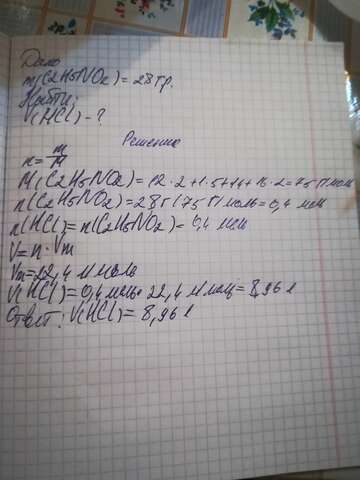 Дано
m(C2H5NO2)=28гр.
Найти:
V(HCl)-?
Решение
n=m/M
M(C2H5NO2)=12·2+1·5+14+16·2=75 г/моль
n(C2H5NO2)=28г/75 г/моль=0,4 мол
n(HCl)=n(C2H5NO2)=0,4 мол
V=n·Vm
Vm=22,4 л/моль
V(HCl)=0,4 моль·22,4 л/моль=8,96 л
Ответ: V(HCl)=8,96 л